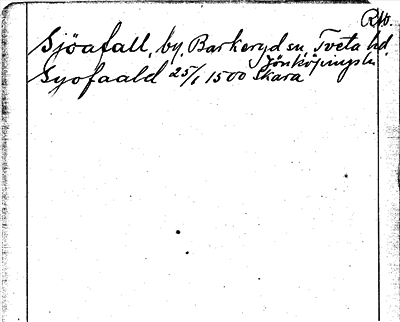 Rfo.
Sjöafall, by, Barkeryd sn, Tveta hd.
Jönköpings l.
Syofaald 25/1 1500 Skara